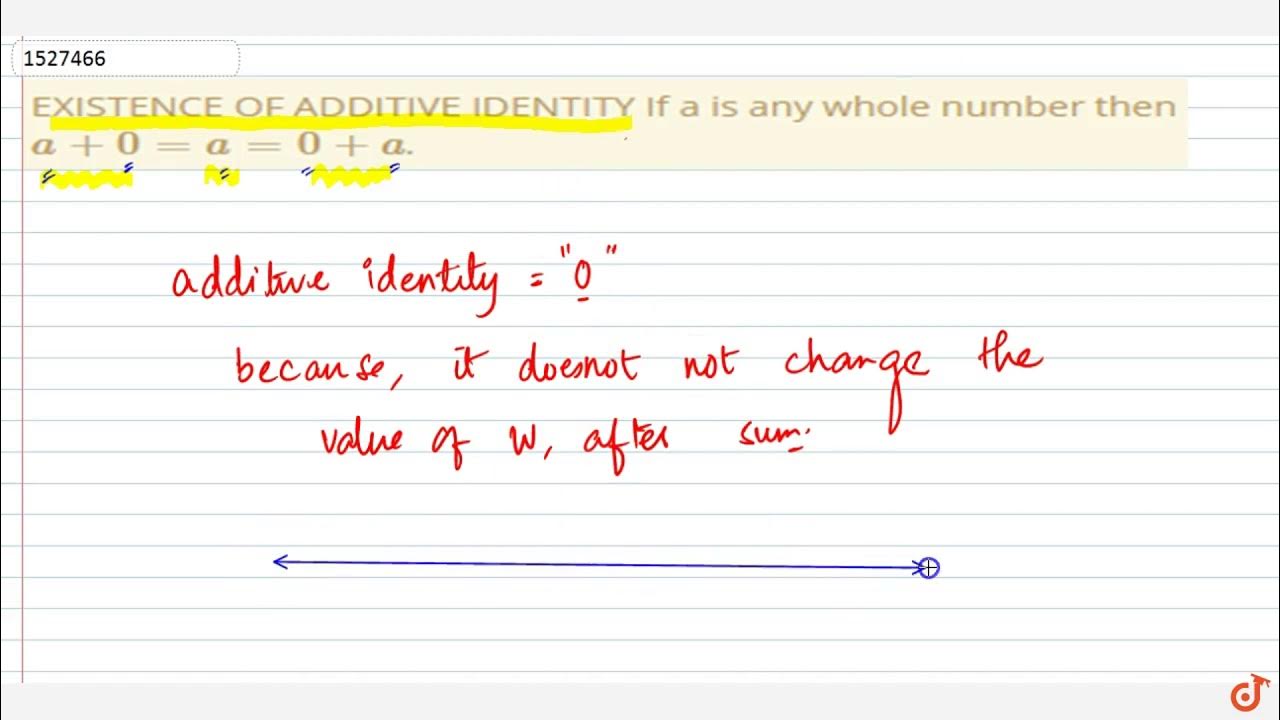 1527466
EXISTENCE OF ADDITIVE IDENTITY If a is any whole number then
a + 0 = a = 0 + a.
additive identity = "0"
because, it doesnot not change the
value of W, after sum.